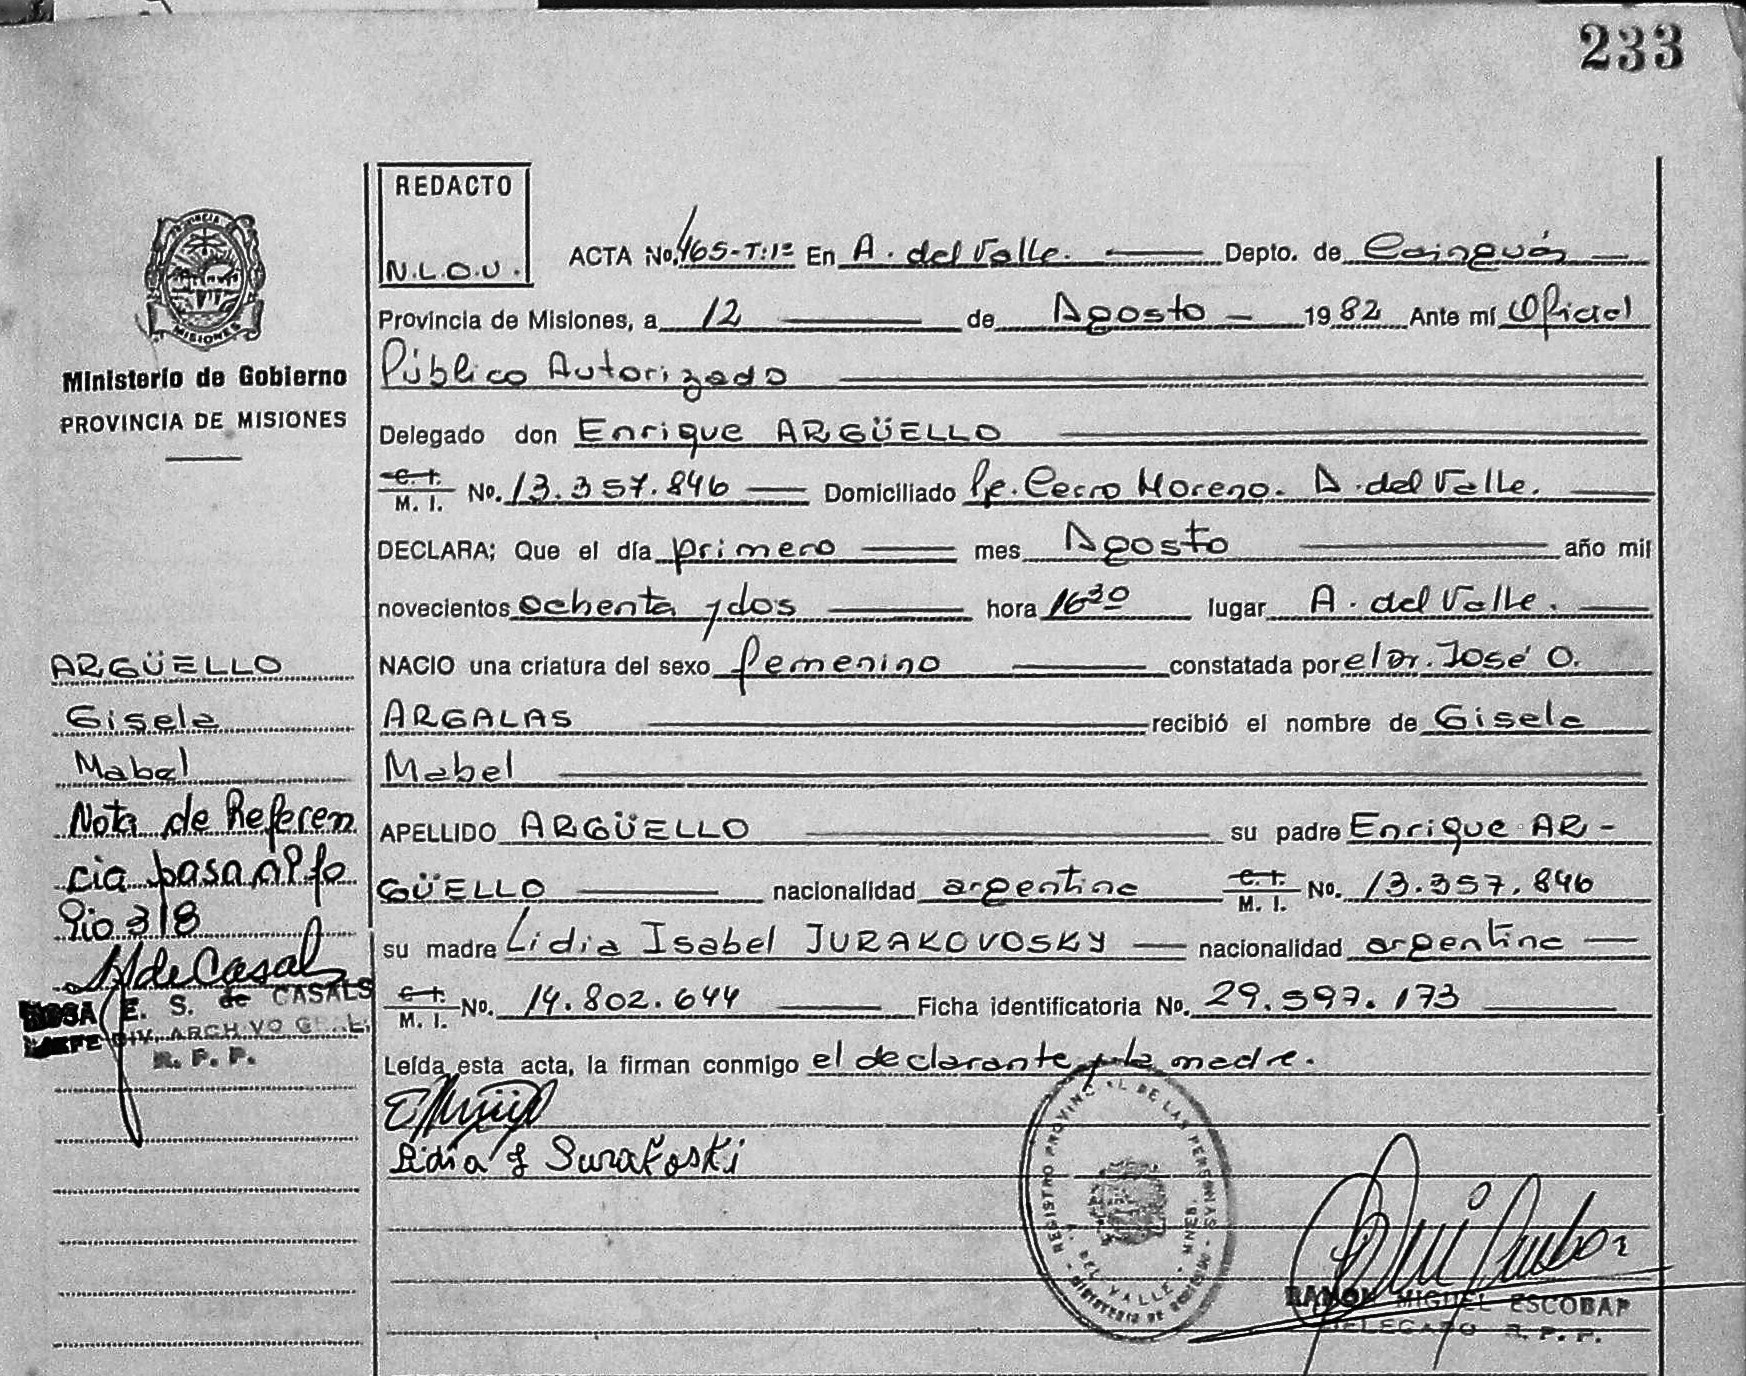 233
REDACTO
N.L.O.U.
ACTA No. 465-T:1º En A. del Valle. Depto. de Cainguás
Provincia de Misiones, a 12 de Agosto 1982 Ante mí Oficial
Público Autorizado
Delegado don Enrique ARGÜELLO
C. I. M. I. No. 13.357.846 Domiciliado Pje. Cerro Moreno. A. del Valle.
DECLARA; Que el día primero mes Agosto año mil
novecientos ochenta y dos hora 16 30 lugar A. del Valle.
NACIO una criatura del sexo femenino constatada por el Dr. José O.
ARGALAS recibió el nombre de Gisela
Mabel
APELLIDO ARGÜELLO su padre Enrique AR-
GÜELLO nacionalidad argentina C. I. M. I. No. 13.357.846
su madre Lidia Isabel JURAKOVOSKY nacionalidad argentina
C. I. M. I. No. 14.802.644 Ficha identificatoria No. 29.597.173
Leída esta acta, la firman conmigo el declarante y la madre.
Lidia I Surakoski
REGISTRO PROVINCIAL DE LAS PERSONAS
MINISTERIO DE GOBIERNO
A. DEL VALLE - MNES.
RAMON MIGUEL ESCOBAR
DELEGADO R. P. P.
MISIONES
Ministerio de Gobierno
PROVINCIA DE MISIONES
ARGÜELLO
Gisela
Mabel
Nota de Referen
cia pasa al fo
lio 318
ROSA E. S. de CASALS
JEFE DIV. ARCHIVO GRAL.
R. P. P.